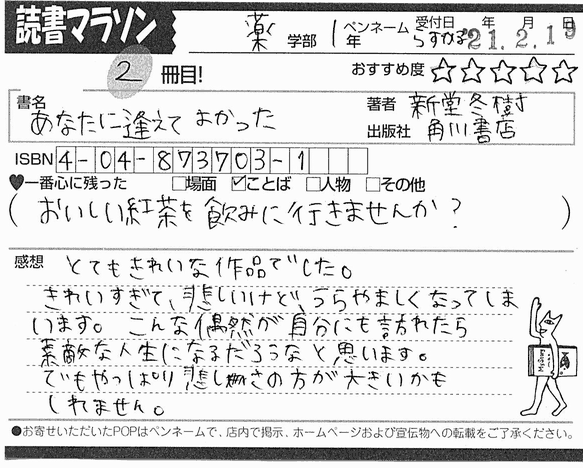 読書マラソン
薬 学部 1年 ペンネーム らすかる 受付日 '21. 2. 19 年 月 日
2 冊目! おすすめ度 ☆☆☆☆☆
書名 あなたに逢えてよかった
著者 新堂冬樹
出版社 角川書店
ISBN 4-04-873703-1
♥一番心に残った □場面 ☑ことば □人物 □その他
( おいしい紅茶を飲みに行きませんか? )
感想 とてもきれいな作品でした。
きれいすぎて、悲しいけど、うらやましくなってしま
います。こんな偶然が自分にも訪れたら
素敵な人生になるだろうなと思います。
でもやっぱり悲しさの方が大きいかも
しれません。
●お寄せいただいたPOPはペンネームで、店内で掲示、ホームページおよび宣伝物への転載をご了承ください。